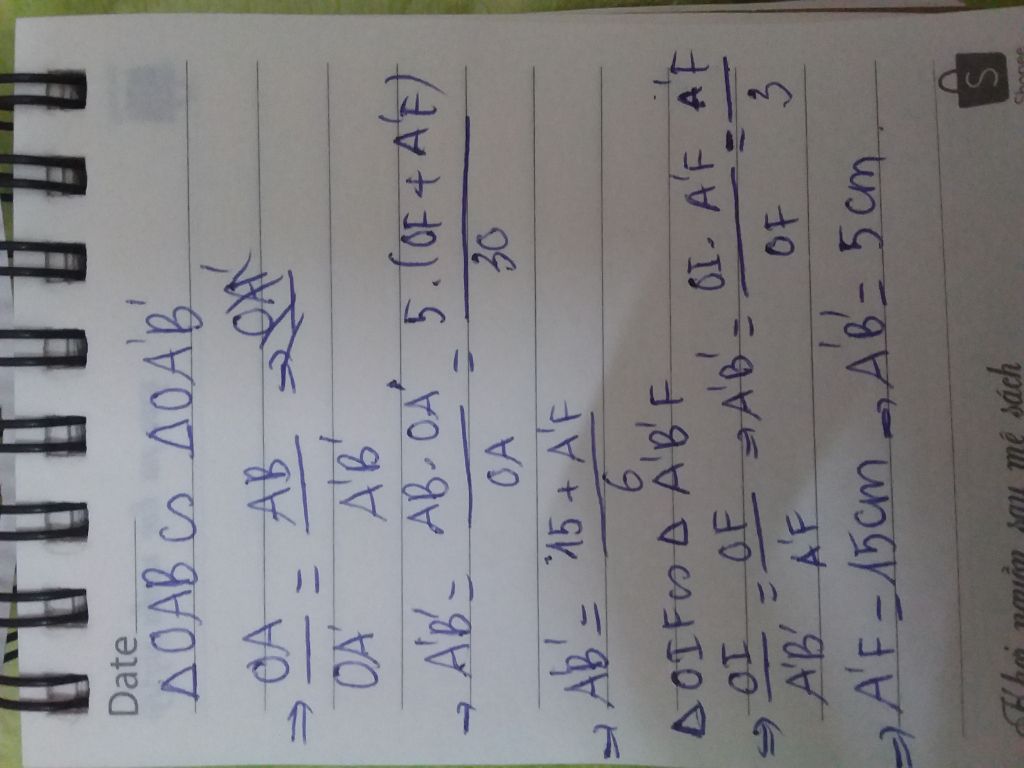 Date
ΔOAB ∽ ΔOA'B'
⇒ OA/OA' = AB/A'B' ⇒ OA'
→ A'B' = AB.OA'/OA = 5.(OF + A'F)/30
⇒ A'B' = 15 + A'F/6
ΔOIF ∽ ΔA'B'F
⇒ OI/A'B' = OF/A'F ⇒ A'B' = OI.A'F/OF = A'F/3
⇒ A'F = 15cm ⇒ A'B' = 5cm
S
sau mê sách